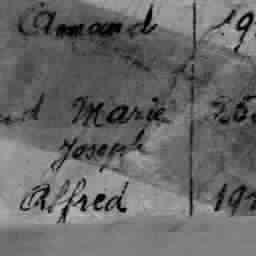 Amand 19
Marie 25
Joseph
Alfred 19